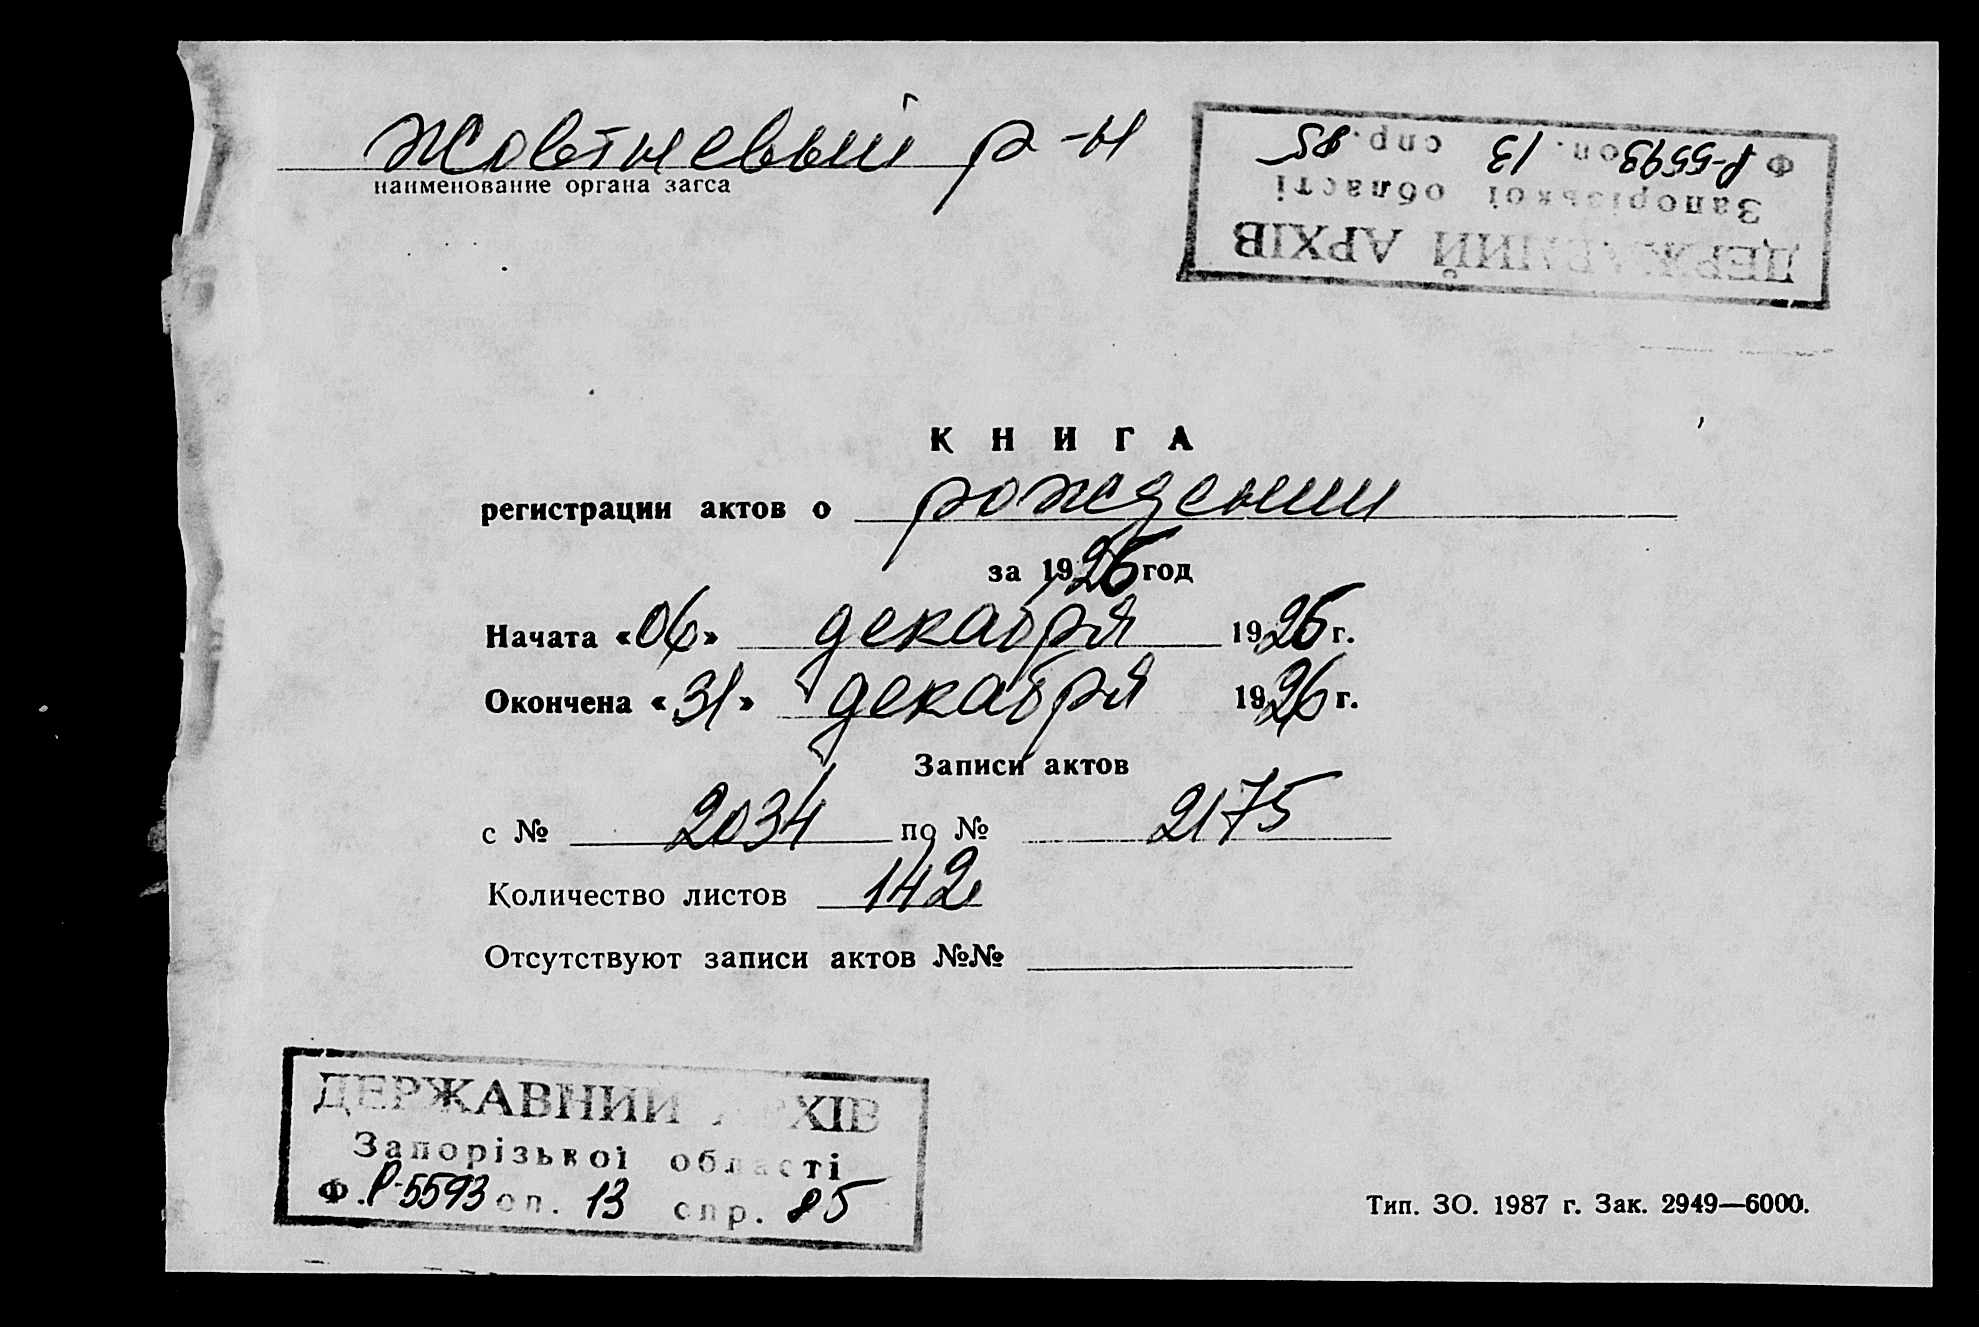 Жовтневый р-н
наименование органа загса
Ф Р-5593 оп. 13 спр. 85
Запорізької області
ДЕРЖАВНИЙ АРХІВ
КНИГА
регистрации актов о рождении
за 1926 год
Начата «06» декабря 1926 г.
Окончена «31» декабря 1926 г.
Записи актов
с № 2034 по № 2175
Количество листов 142
Отсутствуют записи актов №№
ДЕРЖАВНИЙ АРХІВ
Запорізької області
Ф. Р-5593 оп. 13 спр. 85
Тип. ЗО. 1987 г. Зак. 2949—6000.